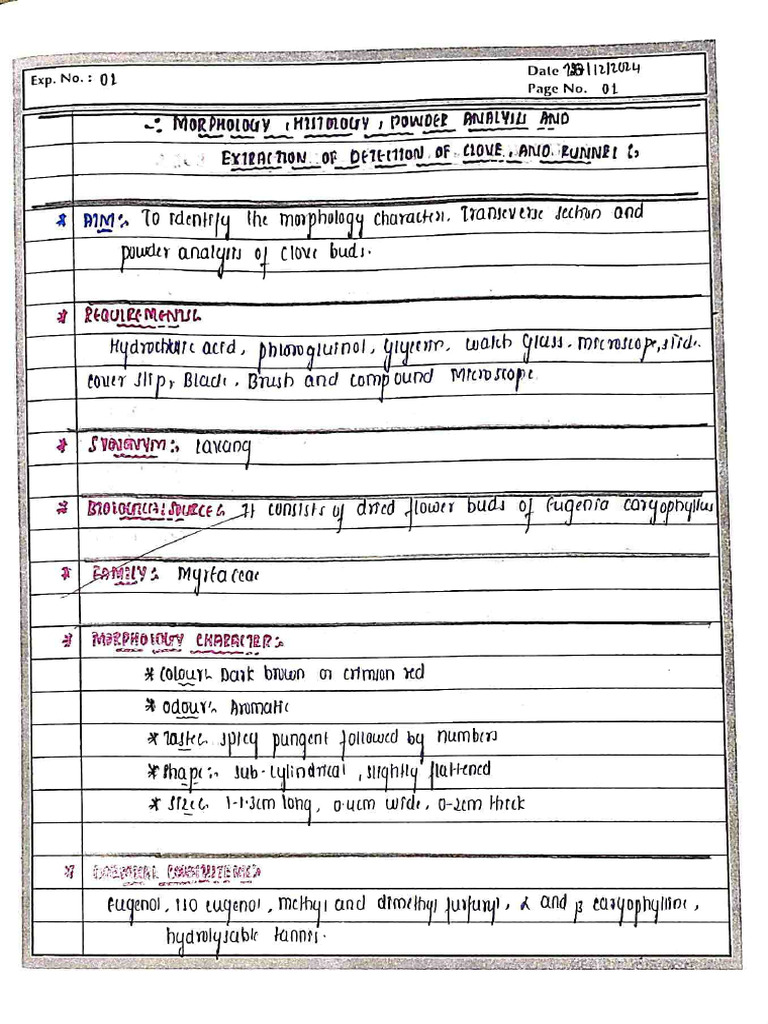 Exp. No. : 01
Date /12/2024
Page No. 01
-: MORPHOLOGY, HISTOLOGY, POWDER ANALYSIS AND
EXTRACTION OF DETECTION OF CLOVE, AND
* AIM:- To identify the morphology character, Transeverse section and
powder analysis of clove buds.
* REQUIREMENTS:
Hydrochloric acid, phloroglucinol, Glycerin, watch Glass, microscope, slide
cover slip, Blade, Brush and compound Microscope
* SYNONYM:- Lavang
* BIOLOGICAL SOURCE:- It consists of dried flower buds of Eugenia caryophyllus
* FAMILY:- Myrtaceae
* MORPHOLOGY CHARACTER:-
* Colour:- Dark brown or crimson red
* odour:- Aromatic
* Taste:- spicy pungent followed by numbers
* Shape:- sub-cylindrical, slightly flattened
* Size:- 1-1.3cm long, 0.4cm wide, 0-2cm thick
* CHEMICAL CONSTITUENTS
Eugenol, iso eugenol, methyl and dimethyl furfuryl, α and β caryophylline,
hydrolysable